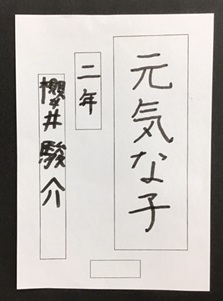 元気な子
二年
櫻井駿介